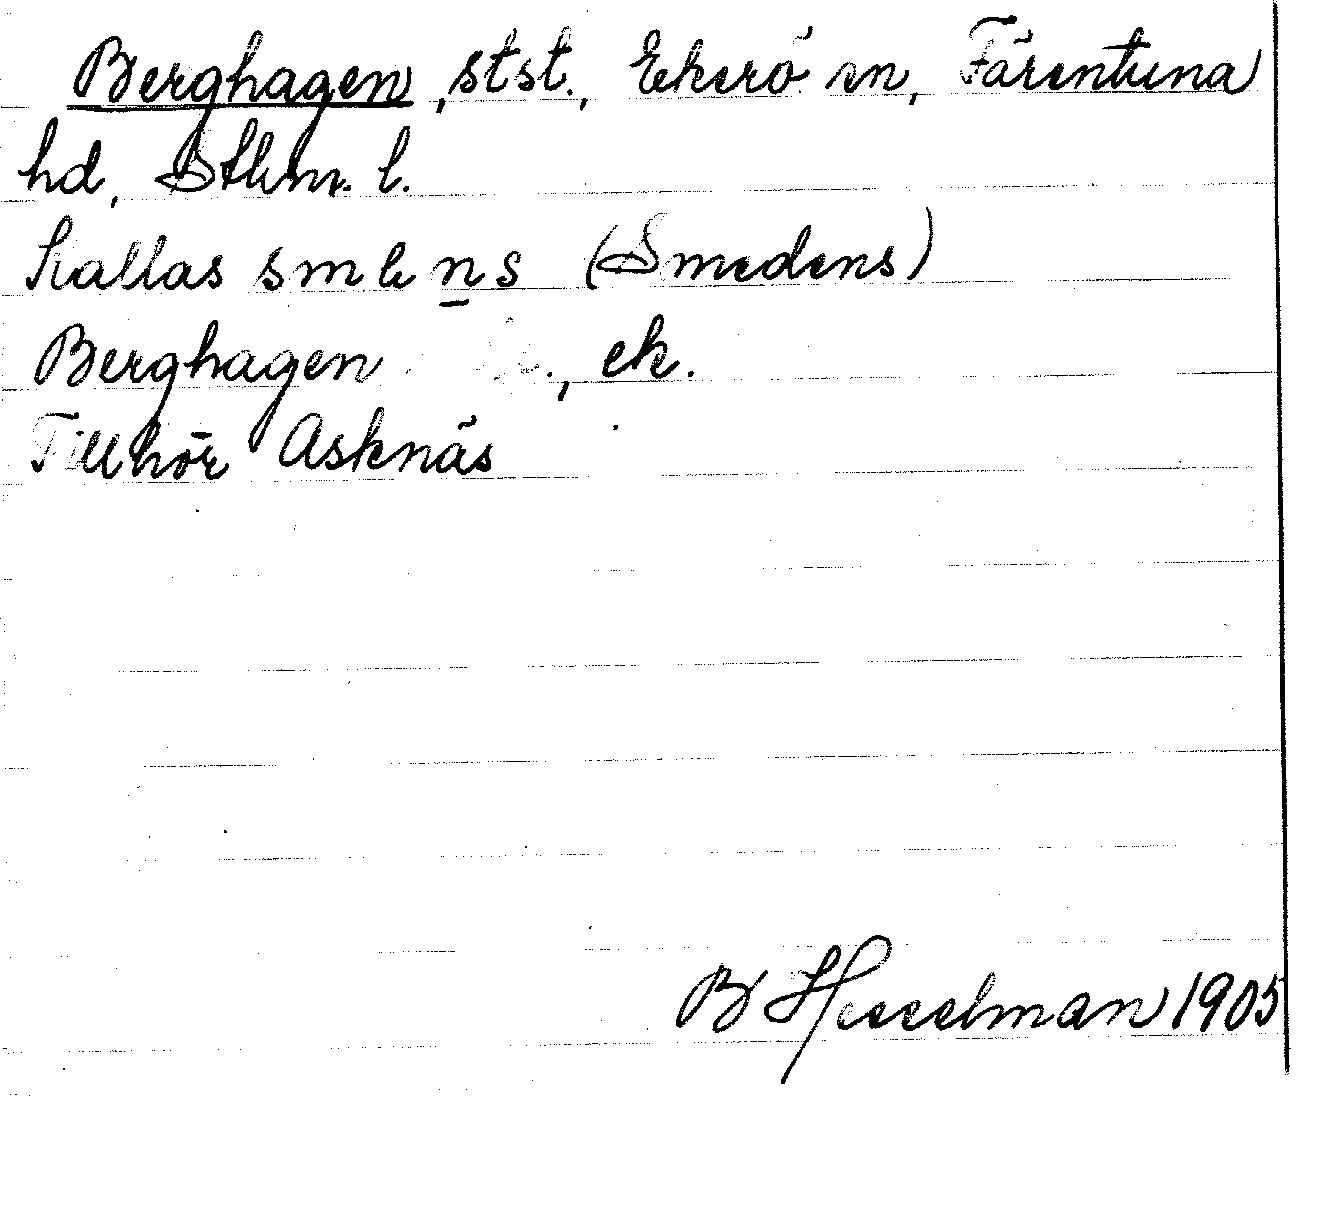 Berghagen, stst., Ekerö sn, Färentuna
hd, Sthm. l.
Kallas (Smedens)
Berghagen , ek.
Tillhör Asknäs
B Hesselman 1905